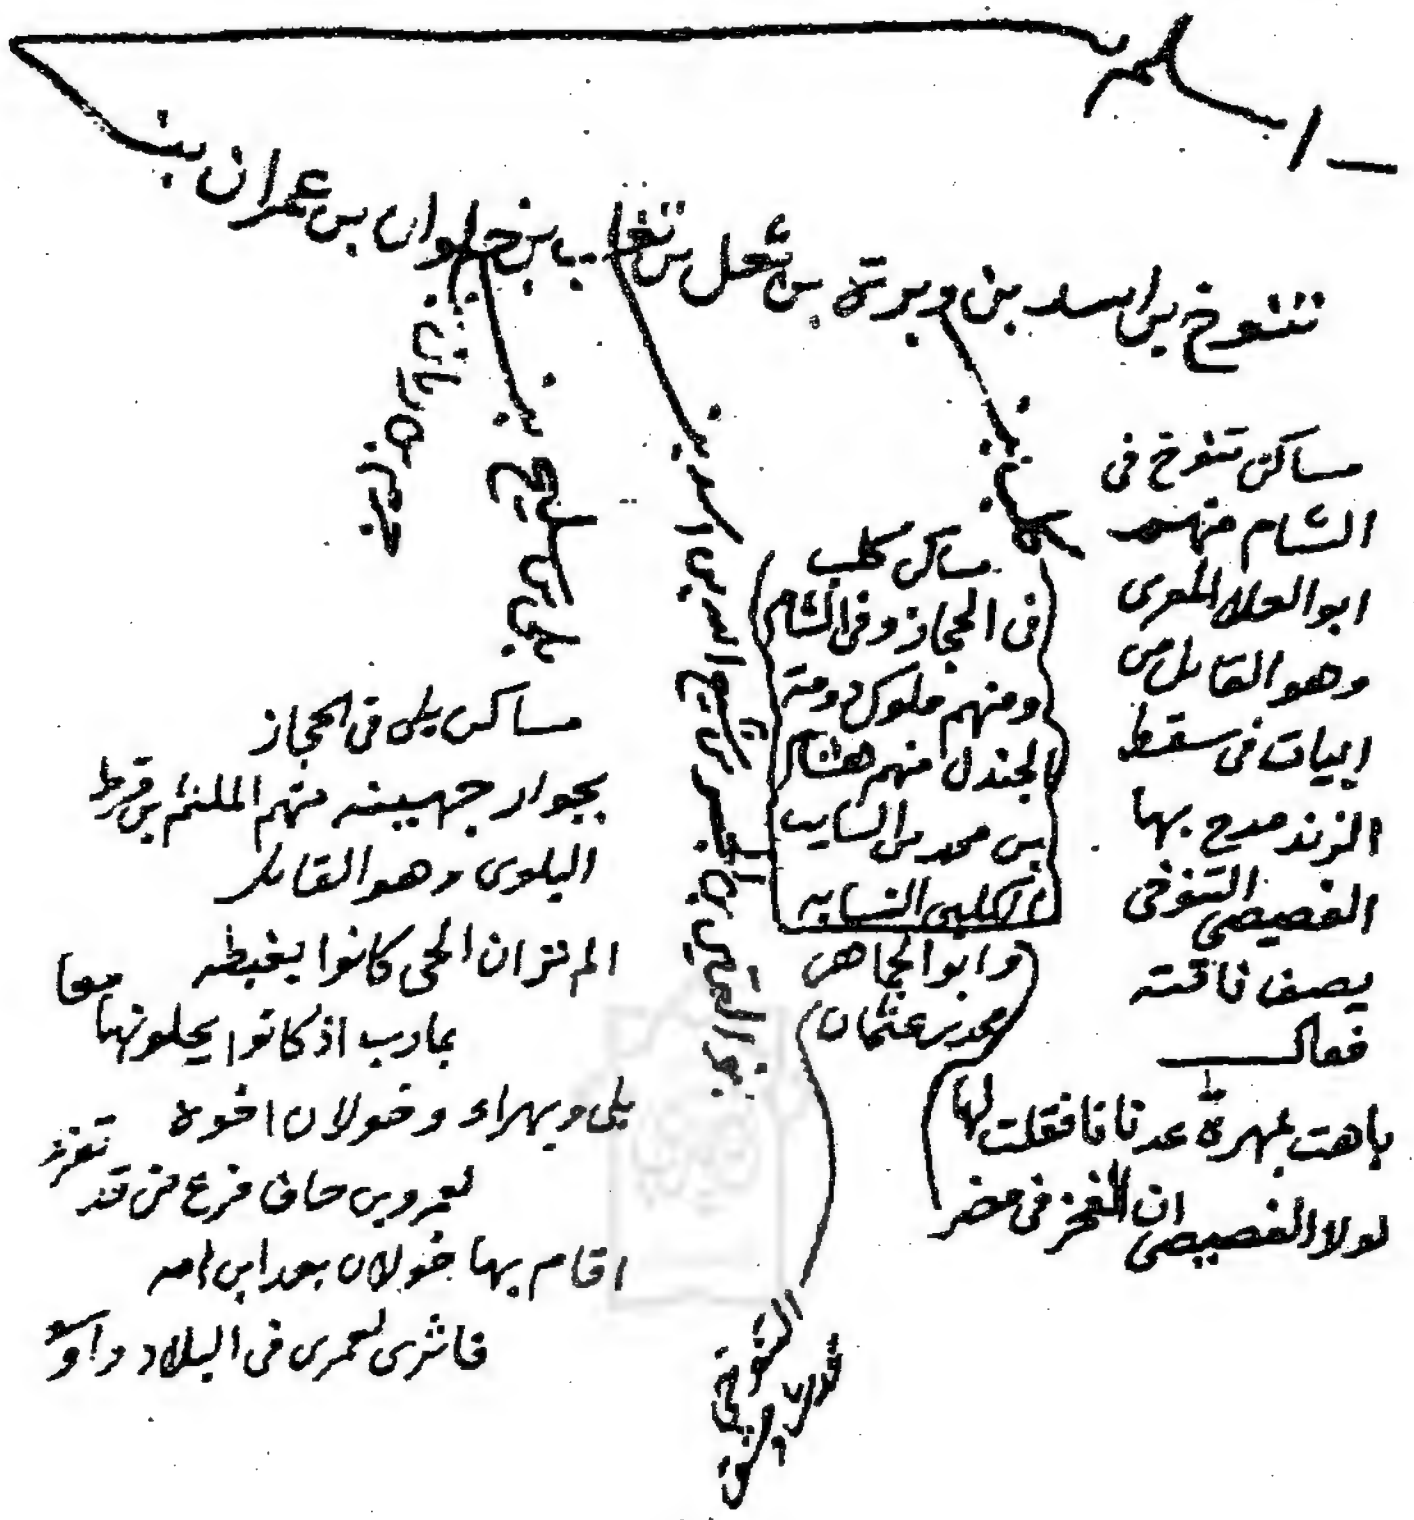 اسلم
تنوخ بن اسد بن وبرة بن ثعل بن تغلب بن حلوان بن عمران بن
كلب بن
بنو القين بن جسر بن شيع اللـه بن اسد بن
بن سليح بن
جرم بن ربان بن
مساكن تنوخ فى
الشام منهم
ابو العلاء المعرى
وهو القايل من
ابيات فى سقط
الزند مدح بها
الفصيصى التنوخى
يصف ناقته
فقال
باهت بمهرة عدنانا فقلت لها
لولا الفصيصى ان الفخر فى مضر
مساكن كلب
فى الحجاز وفى الشام
ومنهم ملوك دومة
الجندل منهم هشام
بن محمد بن السايب
الكلبى النسابه
وابو الجماهر
محمد بن عثمان
التنوخى
دمشق
مساكن بلى فى الحجاز
بجوار جهينه منهم الملثم بن قرط
البلوى وهو القايل
الم تر ان الحى كانوا بغبطه
بمارب اذ كانوا يحلونها معا
بلى وبهراء وخولان اخوة
لعمرو بن حاف فرع من قد تفرد
اقام بها خولان بعد ابن امه
فاثرى لعمرى فى البلاد